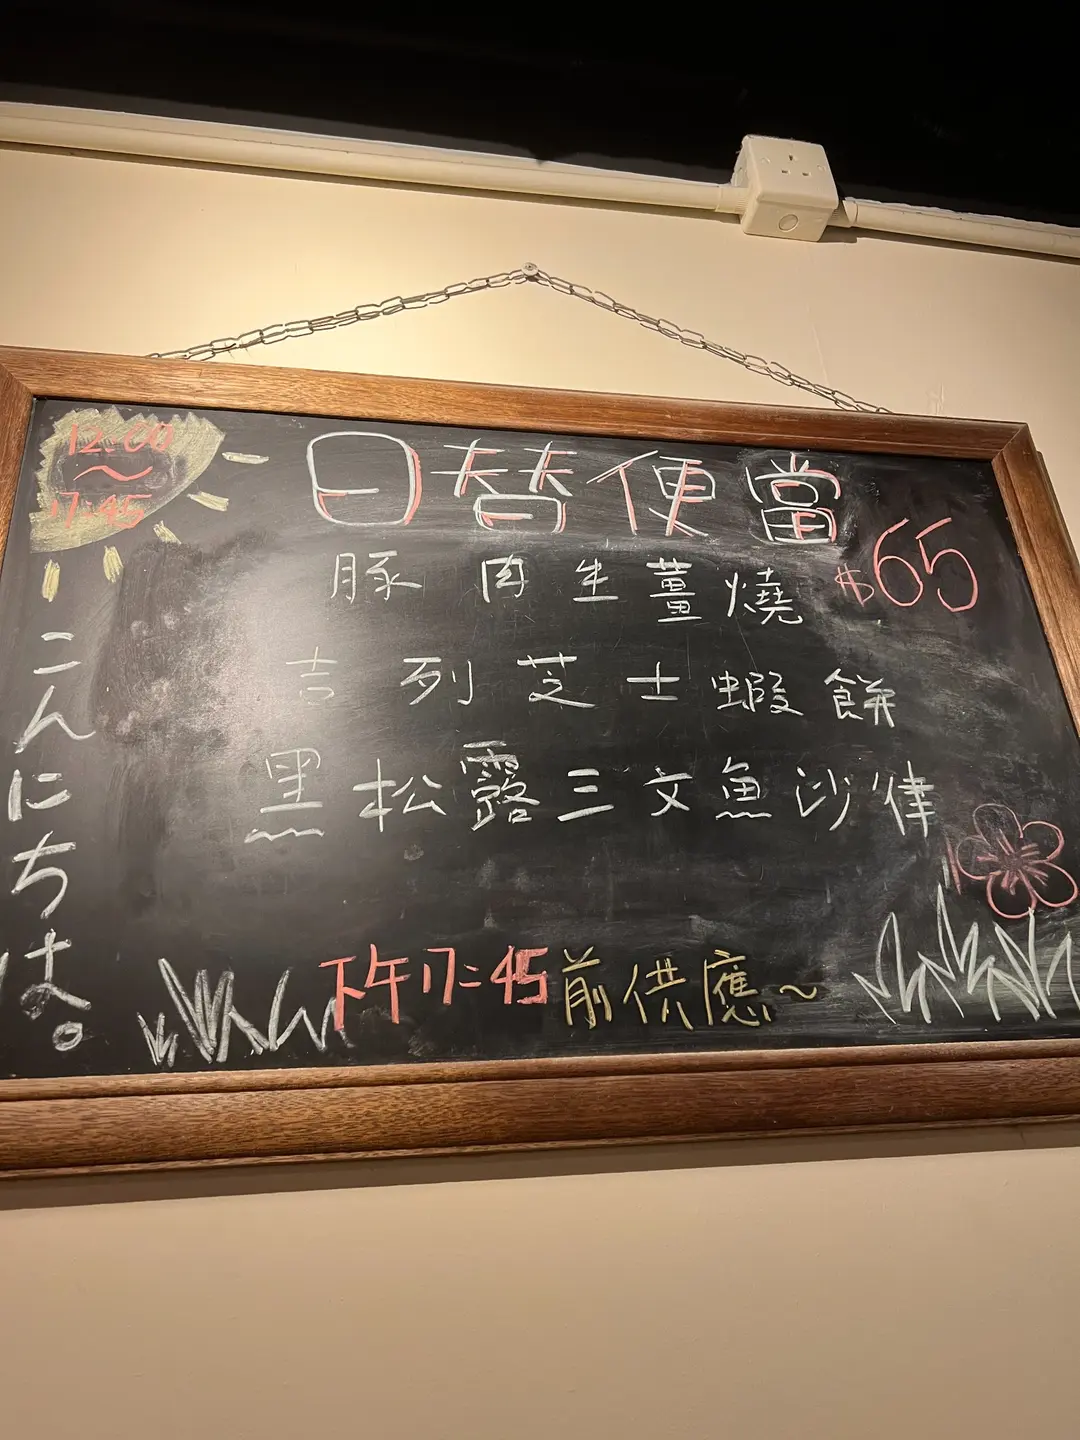 12:00
~
17:45
日替便當
豚肉生薑燒
$65
吉列芝士蝦餅
黑松露三文魚沙律
下午17:45前供應~
こんにちは。